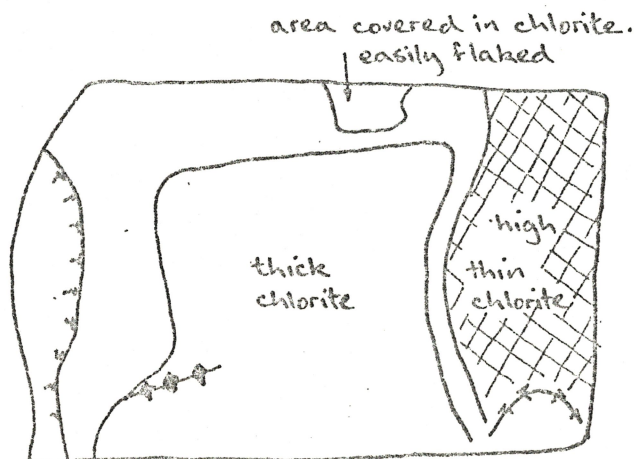 area covered in chlorite.
easily flaked
thick
chlorite
high
thin
chlorite